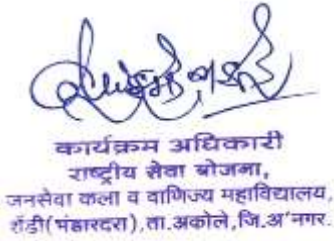 कार्यक्रम अधिकारी
राष्ट्रीय सेवा योजना,
जनसेवा कला व वाणिज्य महाविद्यालय,
शेंडी(भंडारदरा),ता.अकोले,जि.अ'नगर.